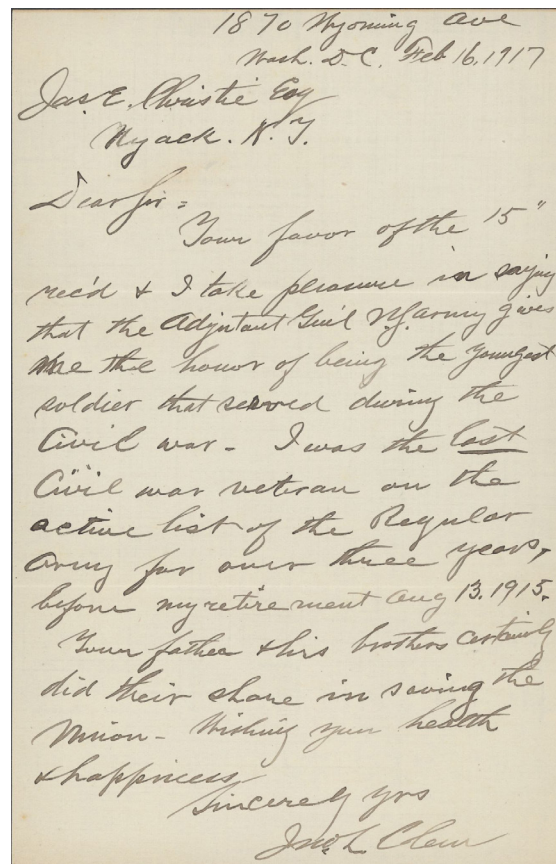 1870 Wyoming Ave
Wash. D.C. Feb 16, 1917
Jas. E. Christie Esq
Nyack. N.Y.
Dear Sir =
Your favor of the 15"
rec'd & I take pleasure in saying
that the Adjutant Gen'l Army gives
me the honor of being the youngest
soldier that served during the
Civil war - I was the last
Civil war veteran on the
active list of the Regular
Army for over three years,
before my retirement Aug 13. 1915.
Your father & his brothers certainly
did their share in saving the
Union - Wishing you health
& happiness
Sincerely yrs
Jno. L. Clem